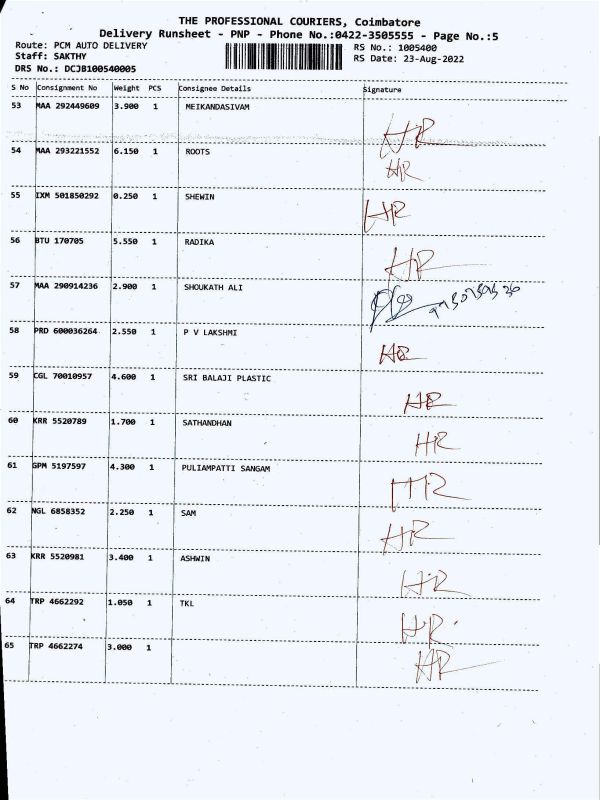 THE PROFESSIONAL COURIERS, Coimbatore
Delivery Runsheet - PNP - Phone No.:0422-3505555 - Page No.:5
Route: PCM AUTO DELIVERY RS No.: 1005400
Staff: SAKTHY RS Date: 23-Aug-2022
DRS No.: DCJB100540005
S No Consignment No Weight PCS Consignee Details Signature
53 MAA 292449609 3.900 1 MEIKANDASIVAM HR
54 MAA 293221552 6.150 1 ROOTS HR
55 IXM 501850292 0.250 1 SHEWIN HR
56 BTU 170705 5.550 1 RADIKA HR
57 MAA 290914236 2.900 1 SHOUKATH ALI
58 PRD 600036264 2.550 1 P V LAKSHMI HR
59 CGL 70010957 4.600 1 SRI BALAJI PLASTIC HR
60 KRR 5520789 1.700 1 SATHANDHAN HR
61 GPM 5197597 4.300 1 PULIAMPATTI SANGAM HR
62 NGL 6858352 2.250 1 SAM HR
63 KRR 5520981 3.400 1 ASHWIN HR
64 TRP 4662292 1.050 1 TKL HR
65 TRP 4662274 3.000 1 HR